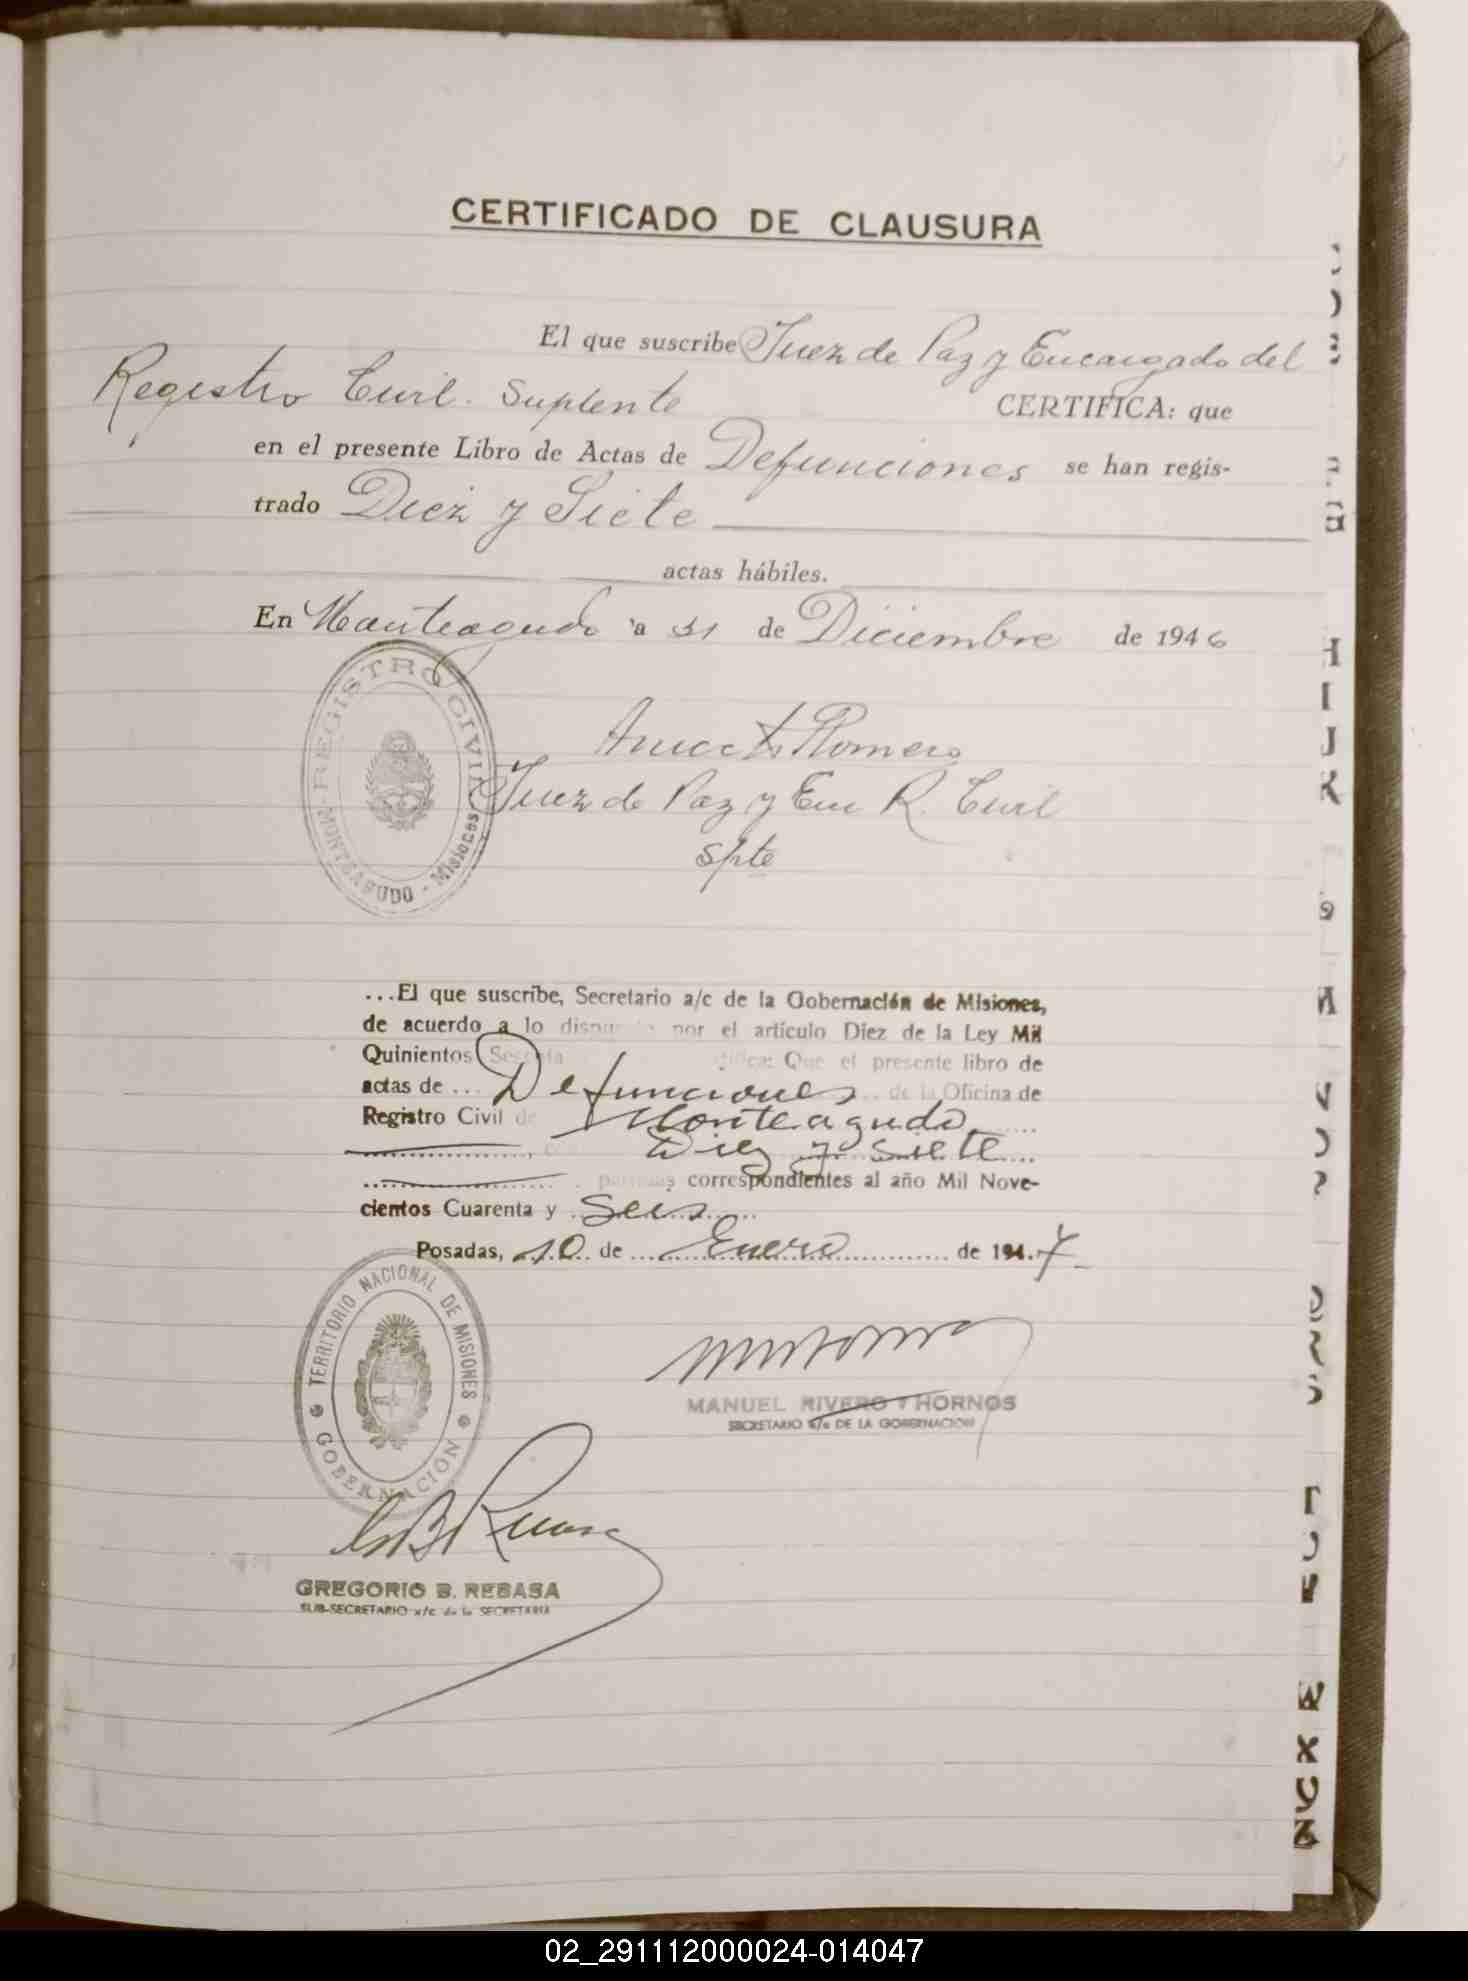 CERTIFICADO DE CLAUSURA
El que suscribe Juez de Paz y Encargado del
Registro Civil. Suplente CERTIFICA: que
en el presente Libro de Actas de Defunciones se han regis-
trado Diez y Siete
actas hábiles.
En Monteagudo a 31 de Diciembre de 1946
REGISTRO CIVIL
MONTEAGUDO - Misiones
Romero
Juez de Paz y Enc R. Civil
Splte
...El que suscribe, Secretario a/c de la Gobernación de Misiones,
de acuerdo a lo por el artículo Diez de la Ley Mil
Quinientos Que el presente libro de
actas de ... Defunciones de la Oficina de
Registro Civil de Monteagudo
Diez y Siete
partidas correspondientes al año Mil Nove-
cientos Cuarenta y Seis
Posadas, 10 de Enero de 1947
TERRITORIO NACIONAL DE MISIONES
GOBERNACIÓN
MANUEL RIVERO Y HORNOS
SECRETARIO a/c DE LA GOBERNACION
GREGORIO B. REBASA
SUB-SECRETARIO a/c de la SECRETARIA
H
I
J
K
M
W
X
Z
02_291112000024-014047